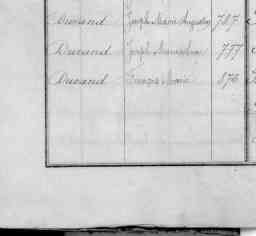 Durand Joseph Marie Augustin 787
Durand Joseph Marie 777
Durand François Marie 876